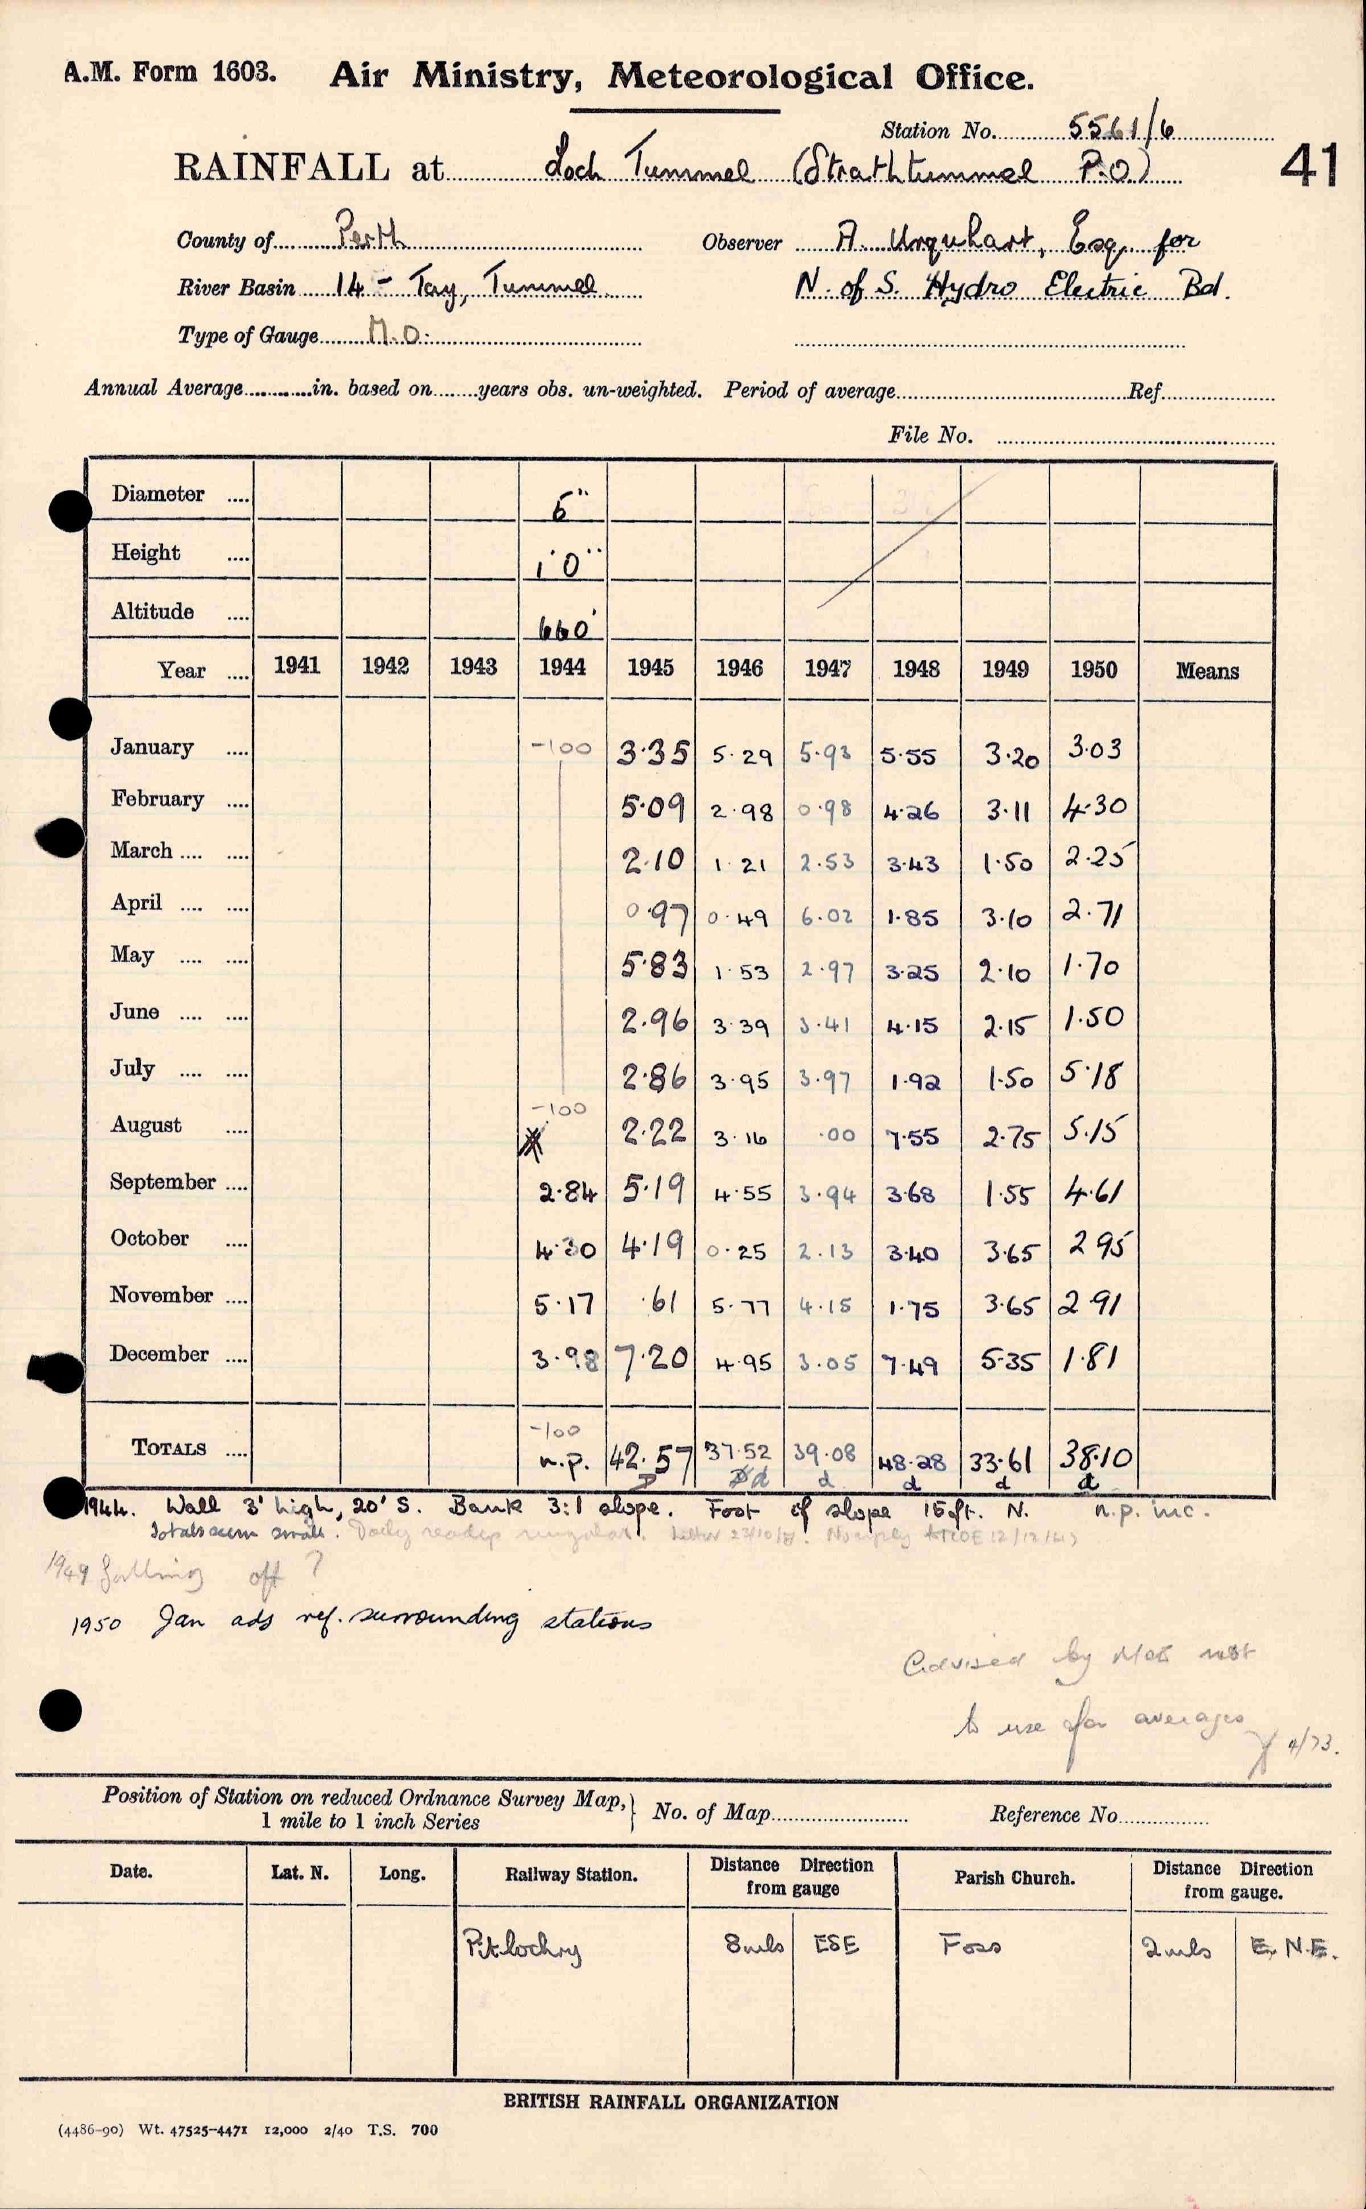 A.M. Form 1603. Air Ministry, Meteorological Office.
Station No. 5561/6
RAINFALL at Loch Tummel (Strathtummel P.O.) 41
County of Perth Observer A. Urquhart, Esq. for
River Basin 14 - Tay, Tummel N. of S. Hydro Electric Bd.
Type of Gauge M.O.
Annual Average in. based on years obs. un-weighted. Period of average Ref.
File No.
Diameter 5"
Height 1'0"
Altitude 660'
Year 1941 1942 1943 1944 1945 1946 1947 1948 1949 1950 Means
January -100 3.35 5.29 5.93 5.55 3.20 3.03
February 5.09 2.98 0.98 4.26 3.11 4.30
March 2.10 1.21 2.53 3.43 1.50 2.25
April 0.97 0.49 6.02 1.85 3.10 2.71
May 5.83 1.53 2.97 3.25 2.10 1.70
June 2.96 3.39 3.41 4.15 2.15 1.50
July 2.86 3.95 3.97 1.92 1.50 5.18
August -100 2.22 3.16 .00 7.55 2.75 5.15
September 2.84 5.19 4.55 3.94 3.68 1.55 4.61
October 4.30 4.19 0.25 2.13 3.40 3.65 2.95
November 5.17 .61 5.77 4.15 1.75 3.65 2.91
December 3.98 7.20 4.95 3.05 7.49 5.35 1.81
-100
TOTALS n.p. 42.57 37.52 39.08 48.28 33.61 38.10
D d d d d d
1944. Wall 3' high, 20' S. Bank 3:1 slope. Foot of slope 15ft. N. n.p. inc.
Totals seem small. Daily Letter
1949 falling off ?
1950 Jan adj ref. surrounding stations
Advised by not
to use for averages
4/73.
Position of Station on reduced Ordnance Survey Map, No. of Map Reference No.
1 mile to 1 inch Series
Date. Lat. N. Long. Railway Station. Distance Direction from gauge Parish Church. Distance Direction from gauge.
Pitlochry 8 mls ESE Foss 2 mls E.N.E.
BRITISH RAINFALL ORGANIZATION
(4486-90) Wt. 47525-4471 12,000 2/40 T.S. 700